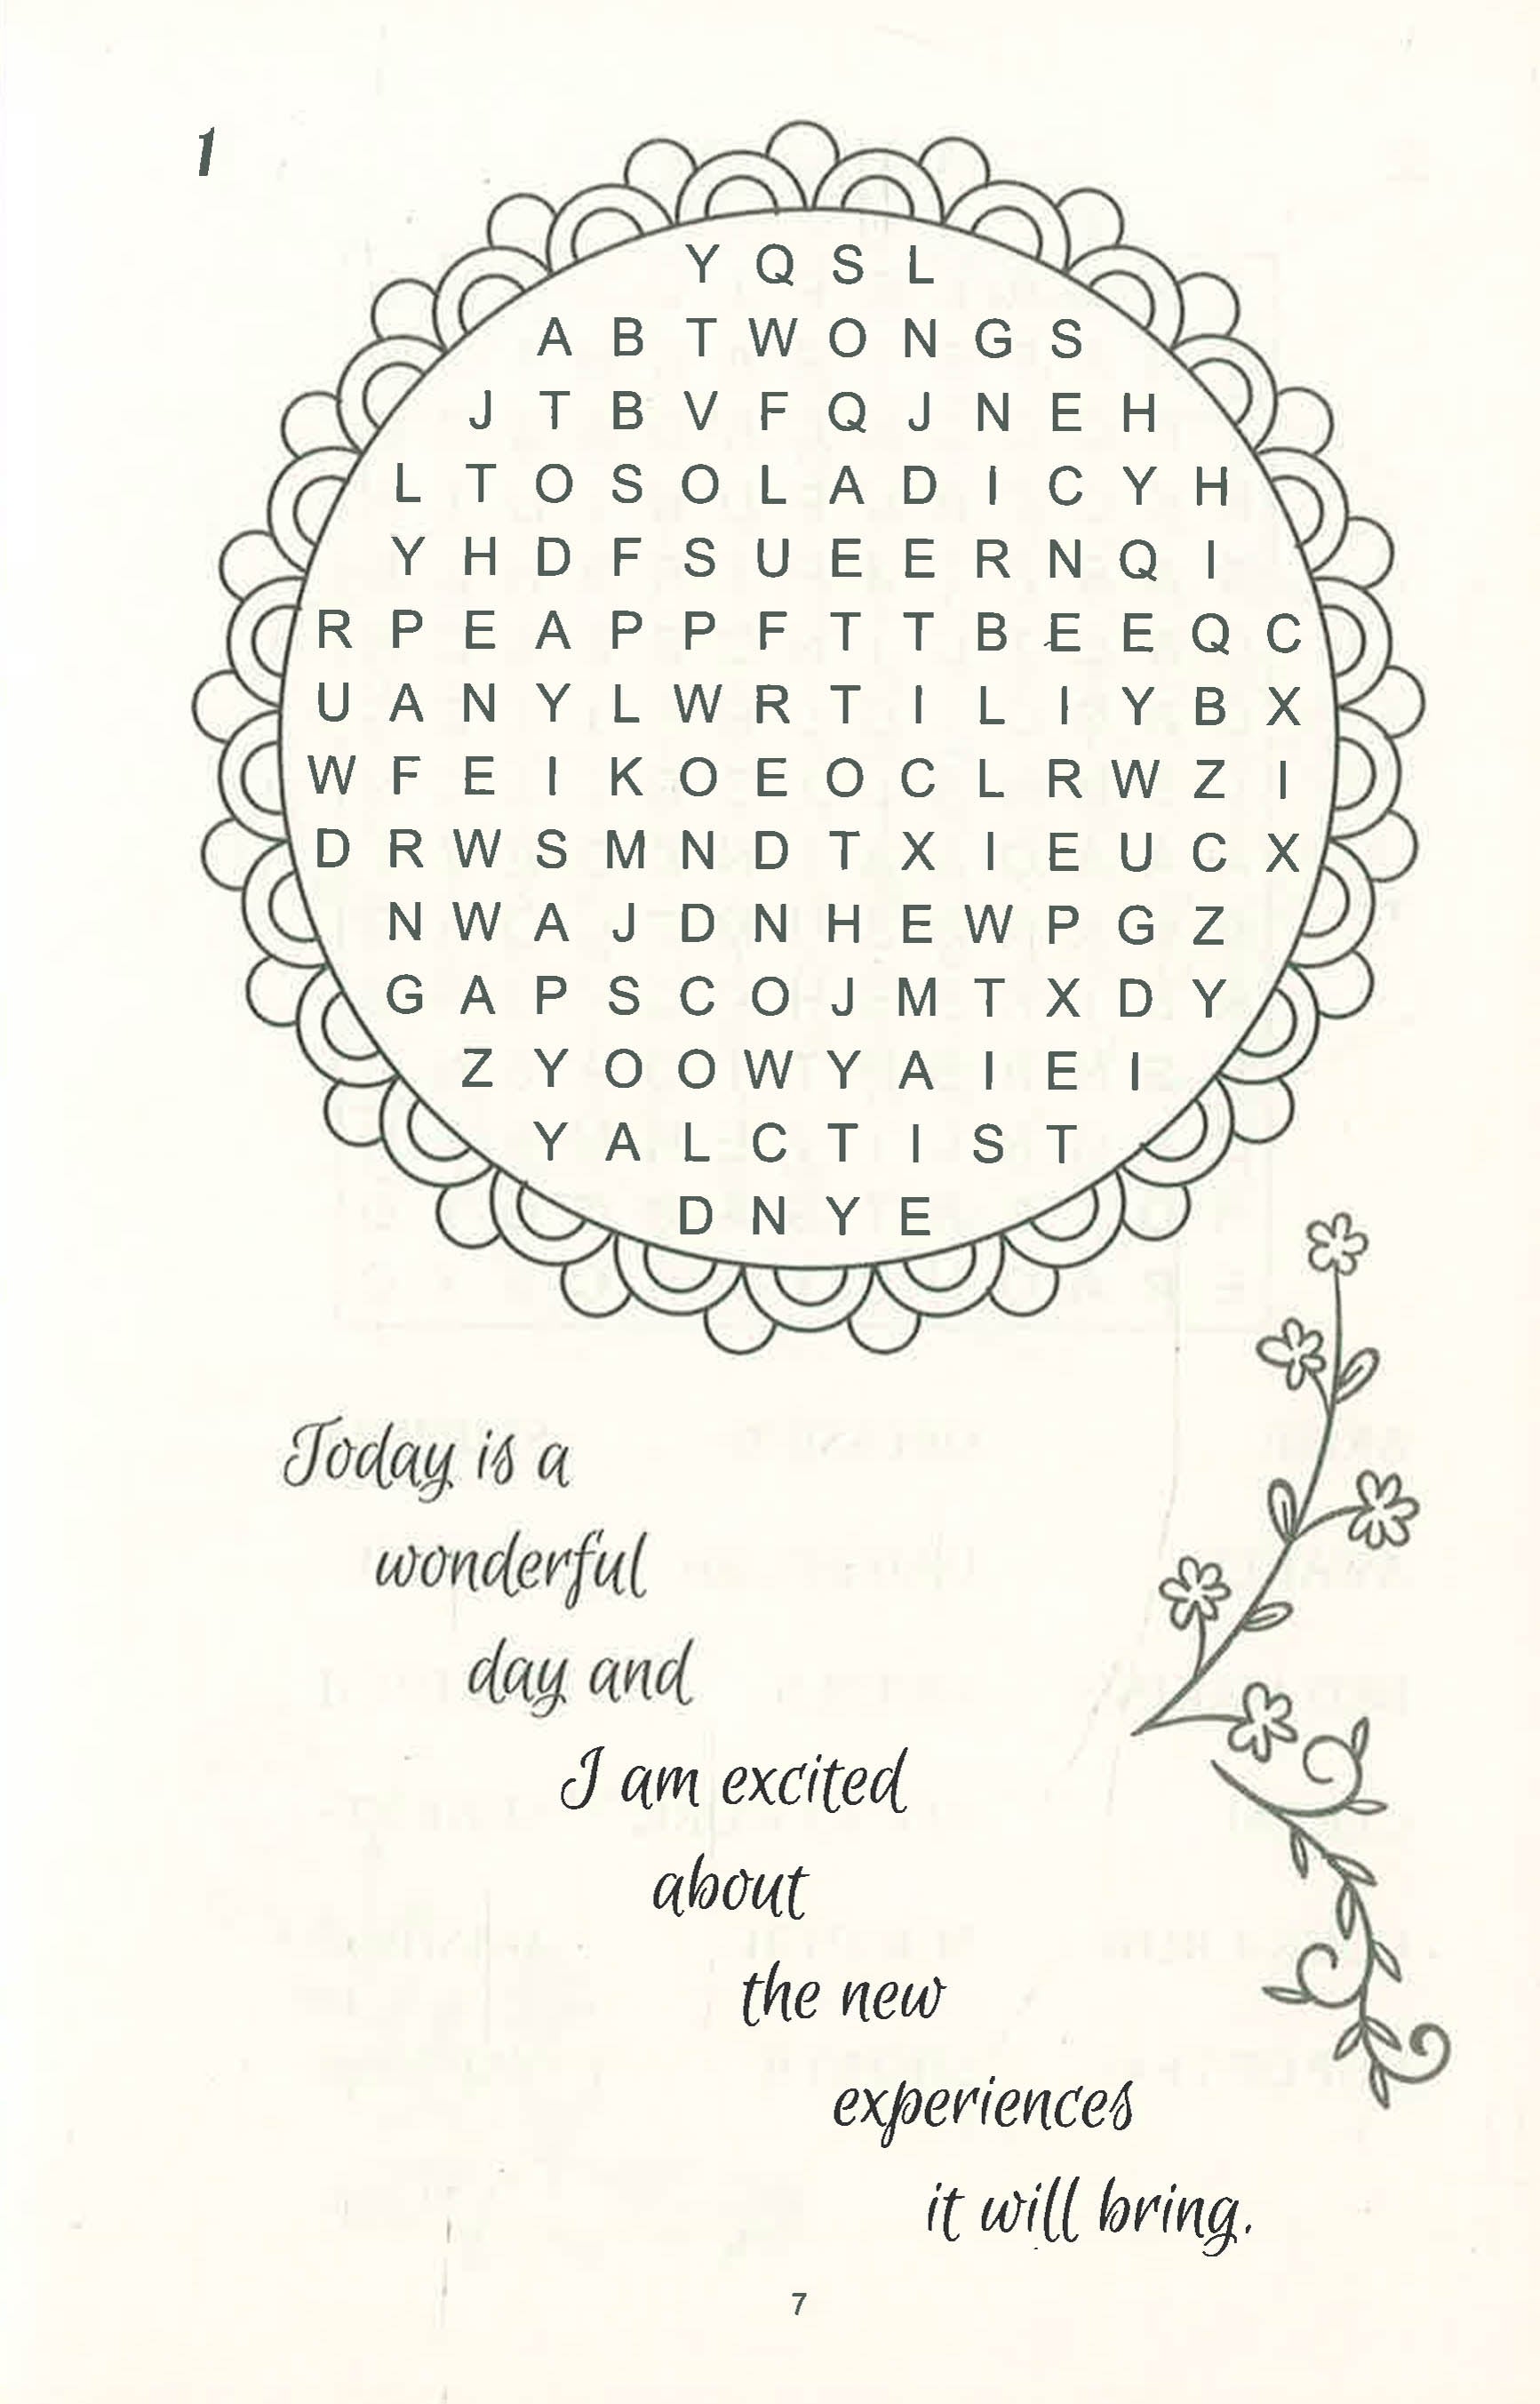 1
Y Q S L
A B T W O N G S
J T B V F Q J N E H
L T O S O L A D I C Y H
Y H D F S U E E R N Q I
R P E A P P F T T B E E Q C
U A N Y L W R T I L I Y B X
W F E I K O E O C L R W Z I
D R W S M N D T X I E U C X
N W A J D N H E W P G Z
G A P S C O J M T X D Y
Z Y O O W Y A I E I
Y A L C T I S T
D N Y E
Today is a
wonderful
day and
I am excited
about
the new
experiences
it will bring.
7